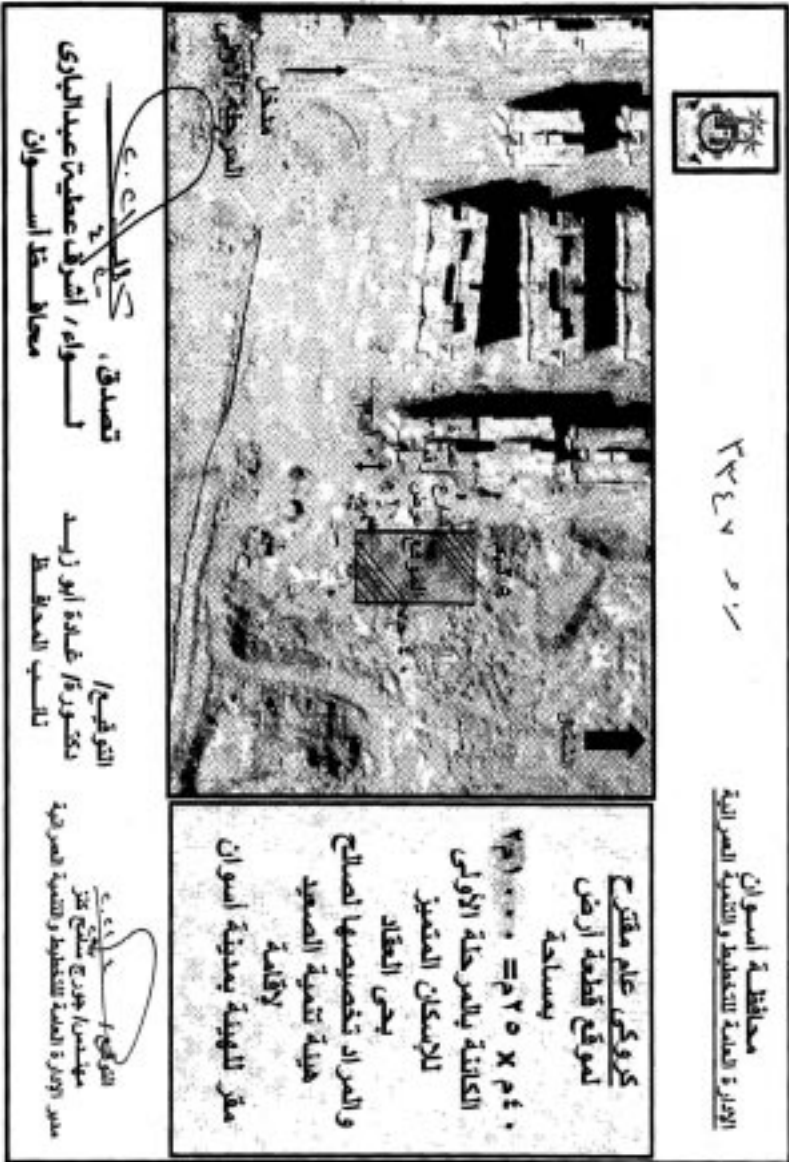 محافظة أسوان
الإدارة العامة للتخطيط والتنمية العمرانية
٢٣٤٧
كروكى عام مقترح
لموقع قطعة أرض
بمساحة
٤٠م × ٢٥م = ١٠٠٠م٢
الكائنة بالمرحلة الأولى
للإسكان المتميز
بحى العقاد
والمراد تخصيصها لصالح
هيئة تنمية الصعيد
لإقامة
مقر للهيئة بمدينة أسوان
مدخل
المرحلة الأولى
الموقع
التوقيع/
مهندس/ جورج
مدير الإدارة العامة للتخطيط والتنمية العمرانية
التوقيع/
دكتورة/ غادة أبو زيد
نائب المحافظ
تصدق،
لواء/ أشرف عطية عبدالبارى
محافظ أسوان